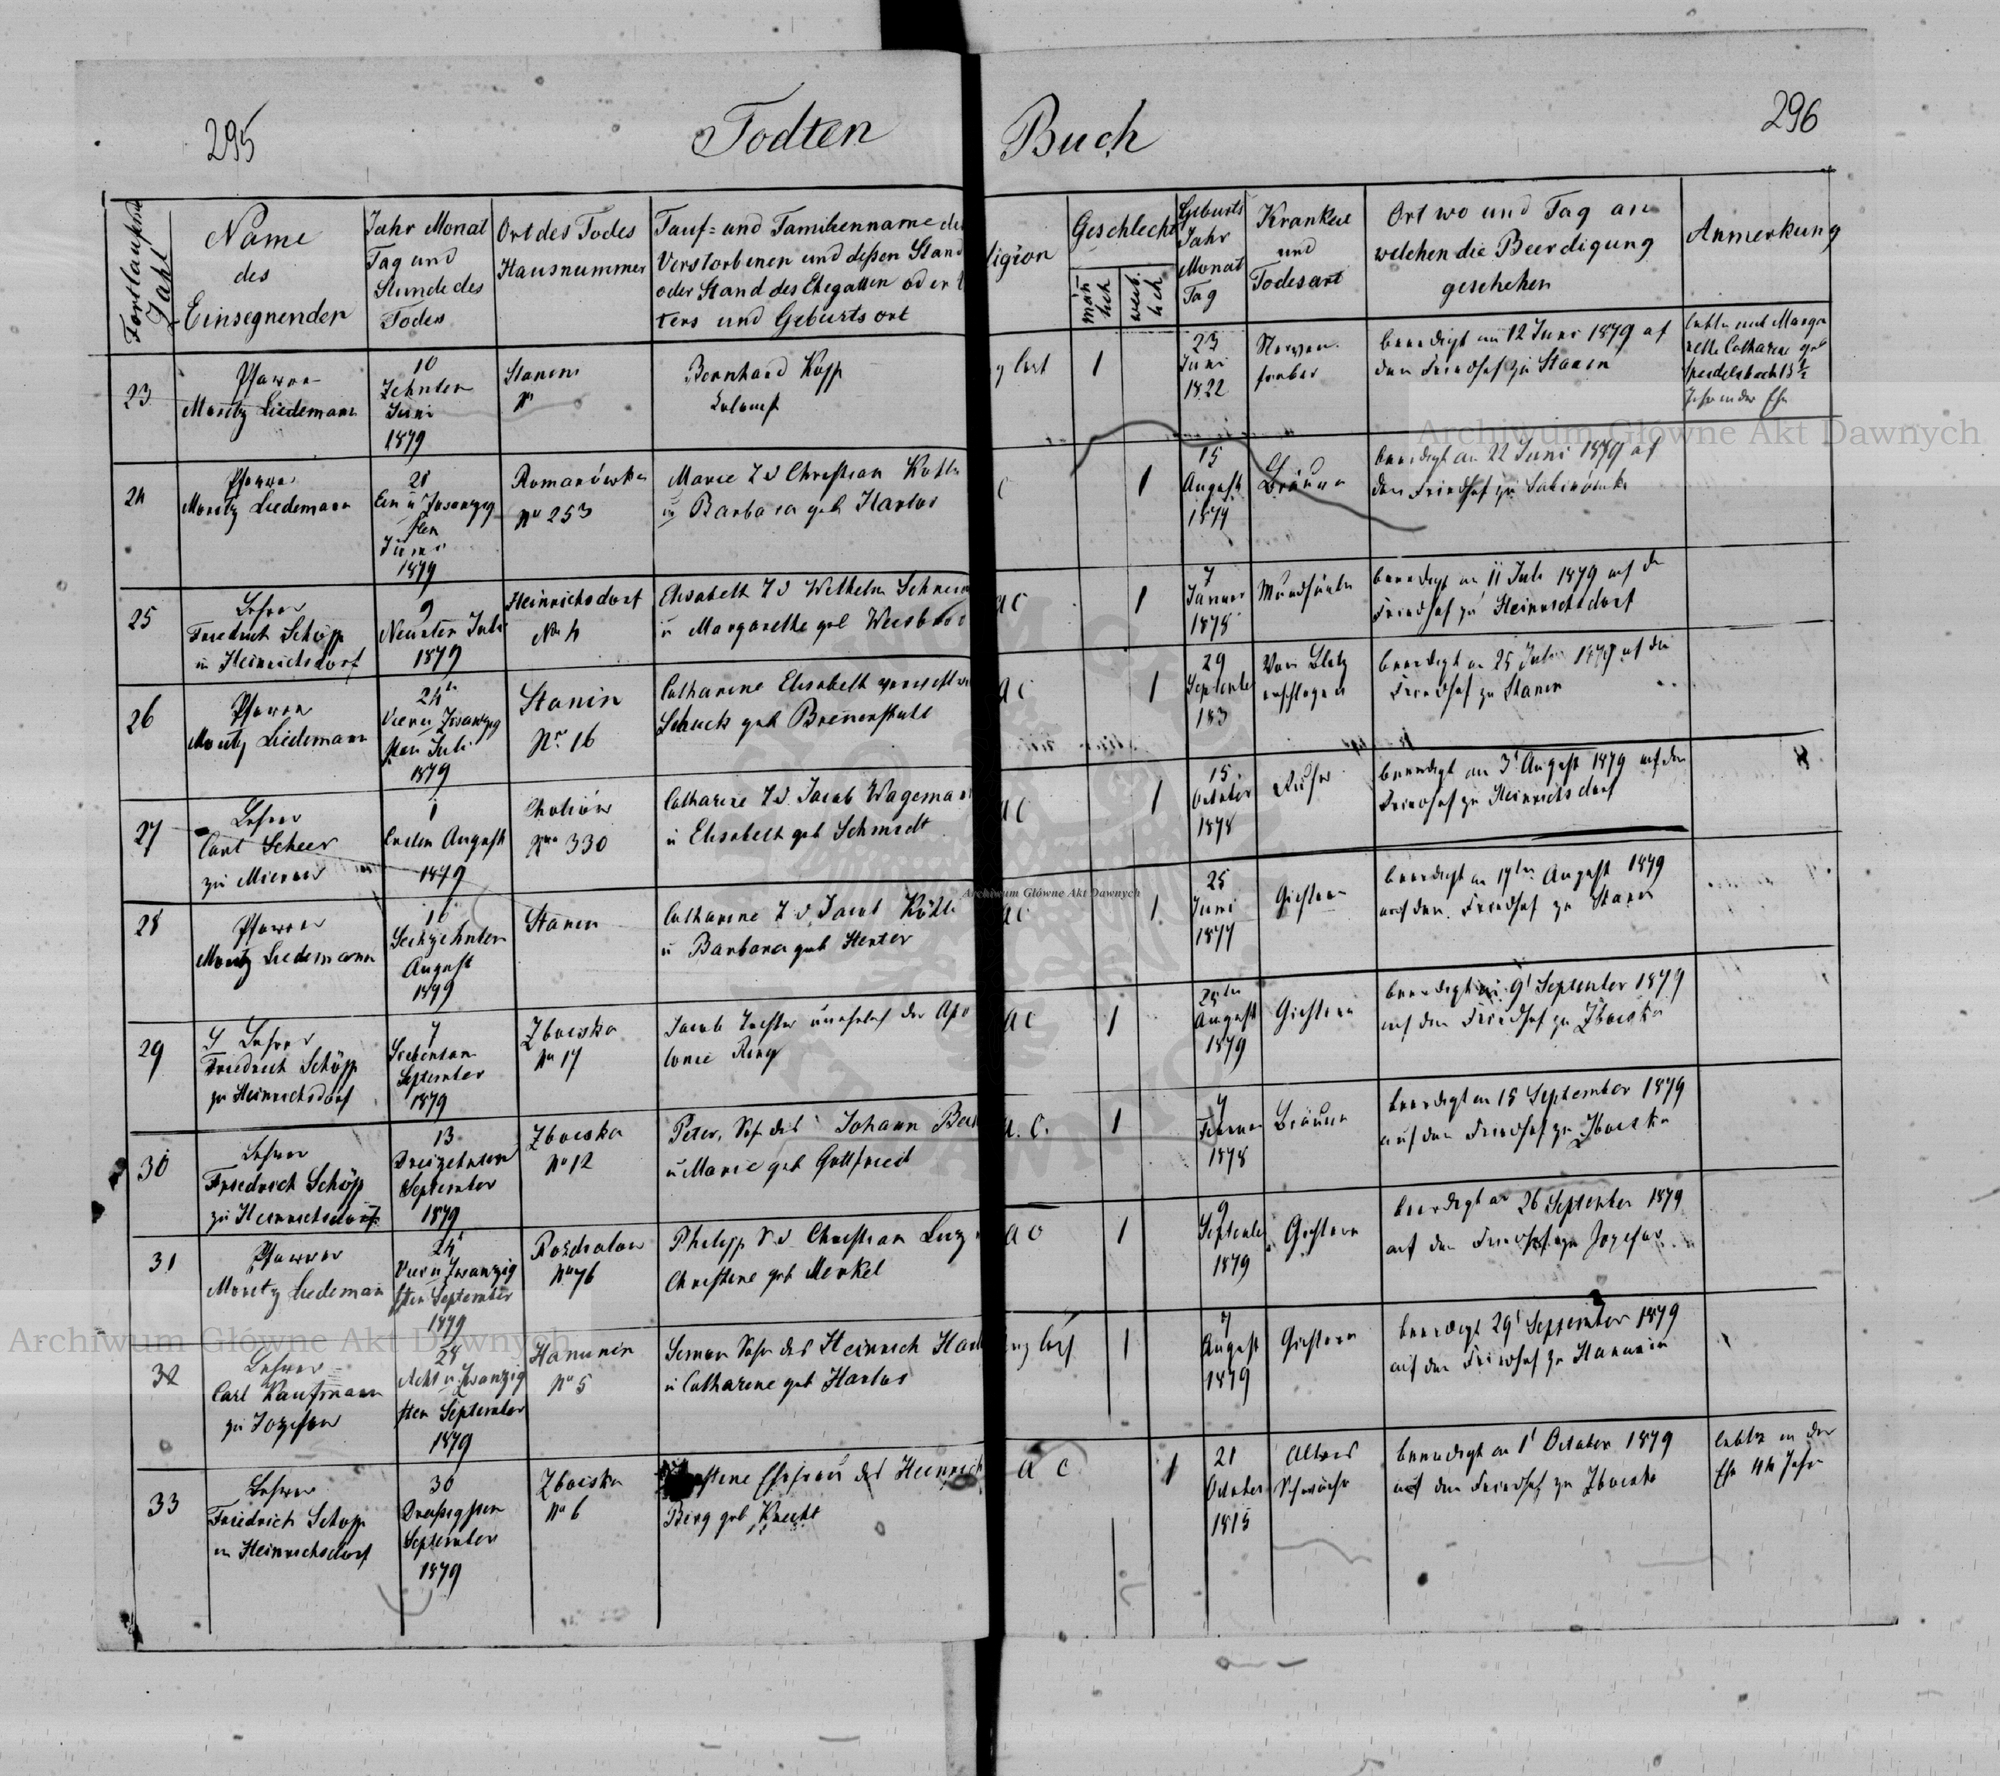 295
Todten Buch
296
Fortlaufende Zahl
Name
des
Einsegnenden
Jahr Monat
Tag und
Stunde des
Todes
Ort des Todes
Hausnummer
Tauf= und Familienname de
Verstorbenen und deßen Stand
oder Stand des Ehegatten oder
ters und Geburtsort
ligion
Geschlecht
män
lich
weib
lich
Geburts
Jahr
Monat
Tag
Krankeit
und
Todesart
Ort wo und Tag an
welchen die Beerdigung
geschehen
Anmerkung
23
Pfarrer
Moritz Liedemann
10
Zehnten
Juni
1879
Stanin
No
Bernhard Kopp
1
23
Juni
1822
Nerven
fieber
beerdigt am 12 Juni 1879 auf
den Friedhof zu Stanin
lebte mit Marga
Catharine geb
Jahr in der Ehe
24
Pfarrer
Moritz Liedemann
21
Ein u Zwanzig
sten
Juni
1879
Romanówka
No 253
Marie T d Christian
u Barbara geb Harlos
1
15
August
1877
Bräune
beerdigt am 22 Juni 1879 auf
den Friedhof zu
25
Lehrer
Friedrich Schöpp
in Heinrichsdorf
9
Neunten Juli
1879
Heinrichsdorf
No 4
Elisabeth T d Wilhelm
u Margarethe geb
a c
1
7
Januar
1878
Mundfäule
beerdigt am 11 Juli 1879 auf de
Friedhof zu Heinrichsdorf
26
Pfarrer
Moritz Liedemann
24
Vier u Zwanzig
sten Juli
1879
Stanin
Nr. 16
Catharine Elisabeth
Schuck geb
a c
1
29
September
183
Vom Blitz
erschlagen
beerdigt am 25 Juli 1879 auf den
Friedhof zu Stanin
27
Lehrer
Carl Scheer
zu Mierów
1
Ersten August
1879
Cholojów
Nro 330
Catharine T d Jacob Wageman
u Elisabeth geb Schmidt
a c
1
15
October
1878
Ruhr
beerdigt am 3 August 1879 auf den
Friedhof zu Heinrichsdorf
28
Pfarrer
Moritz Liedemann
16
Sechzehnten
August
1879
Stanin
Catharine T d Jacob
u Barbara geb Herter
a c
1
25
Juni
1877
Gichtern
beerdigt am 17ten August 1879
auf den Friedhof zu Stanin
29
Lehrer
Friedrich Schöpp
zu Heinrichsdorf
7
Siebenten
September
1879
Zboiska
No 17
Jacob unehelich der Apo
lonie Ring
a c
1
August
1879
Gichtern
beerdigt am 9 September 1879
auf den Friedhof zu Zboiska
30
Lehrer
Friedrich Schöpp
zu Heinrichsdorf
13
Dreizehnten
September
1879
Zboiska
No 12
Peter, Sohn des Johann
u Marie geb Gottfried
a. c.
1
Februar
1878
Bräune
beerdigt am 15 September 1879
auf den Friedhof zu Zboiska
31
Pfarrer
Moritz Liedeman
24
Vier u Zwanzig
sten September
1879
No 76
Philipp S d Christian
Christine geb Merkel
a c
1
9
September
1879
Gichtern
beerdigt am 26 September 1879
auf den Friedhof zu Jozefow
32
Lehrer
Carl Kaufmann
zu Jozefow
28
Acht u Zwanzig
sten September
1879
Hanunin
No 5
Simon Sohn des Heinrich
u Catharine geb Harlos
1
7
August
1879
Gichtern
beerdigt 29 September 1879
auf den Friedhof zu Hanunin
33
Lehrer
Friedrich Schöpp
in Heinrichsdorf
30
Dreißigsten
September
1879
Zboiska
No 6
Christine Ehefrau des Heinrich
Bing geb Knecht
a c
1
21
October
1815
Alters
Schwäche
beerdigt am 1 October 1879
auf den Friedhof zu Zboiska
lebte in der
Ehe 44 Jahr
Archiwum Główne Akt Dawnych
Archiwum Główne Akt Dawnych
Archiwum Główne Akt Dawnych